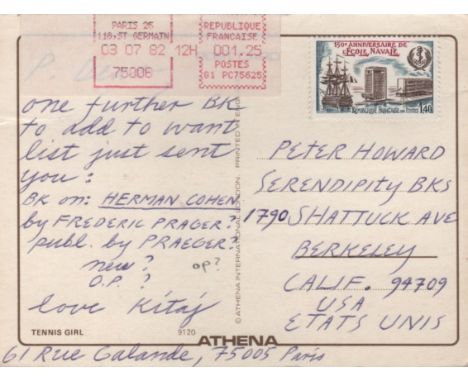 PARIS 25
118, ST GERMAIN
03 07 82 12H
75006
REPUBLIQUE
FRANCAISE
001.25
POSTES
G1 PC75625
150e ANNIVERSAIRE DE
L'ÉCOLE NAVALE
REPUBLIQUE FRANCAISE
1,40
one further BK
to add to want
list just sent
you:
BK on: HERMAN COHEN
by FREDERIC PRAGER?
publ. by PRAEGER?
new?
O.P.?
op?
love Kitaj
PETER HOWARD
SERENDIPITY BKS
1790 SHATTUCK AVE
BERKELEY
CALIF. 94709
USA
ETATS UNIS
© ATHENA INTERNATIONAL
TENNIS GIRL
9120
ATHENA
61 Rue Galande, 75005 Paris